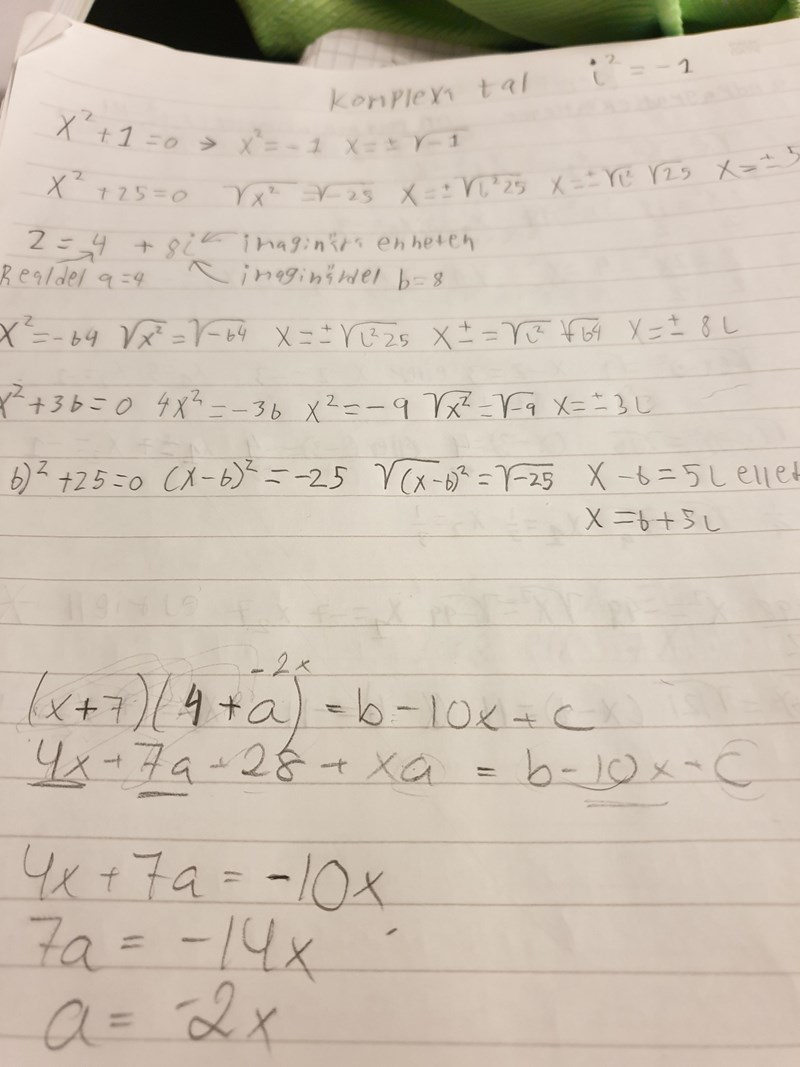 Komplexa tal i² = -1
x² + 1 = 0 → x² = -1 x = ± √-1
x² + 25 = 0 √x² = √-25 x = ± √i²25 x = ± √i² √25 x = ± 5
Z = 4 + 8i ← imaginära enheten
Realdel a = 4 imaginärdel b = 8
x² = -64 √x² = √-64 x = ± √i²25 x ± = √i² √64 x = ± 8i
x² + 36 = 0 4x² = -36 x² = -9 √x² = √-9 x = ± 3i
6)² + 25 = 0 (x-6)² = -25 √(x-6)² = √-25 x - 6 = 5i eller
x = 6 + 5i
-2x
(x+7)(4+a) = b - 10x + c
4x + 7a + 28 + xa = b - 10x - c
4x + 7a = -10x
7a = -14x
a = -2x